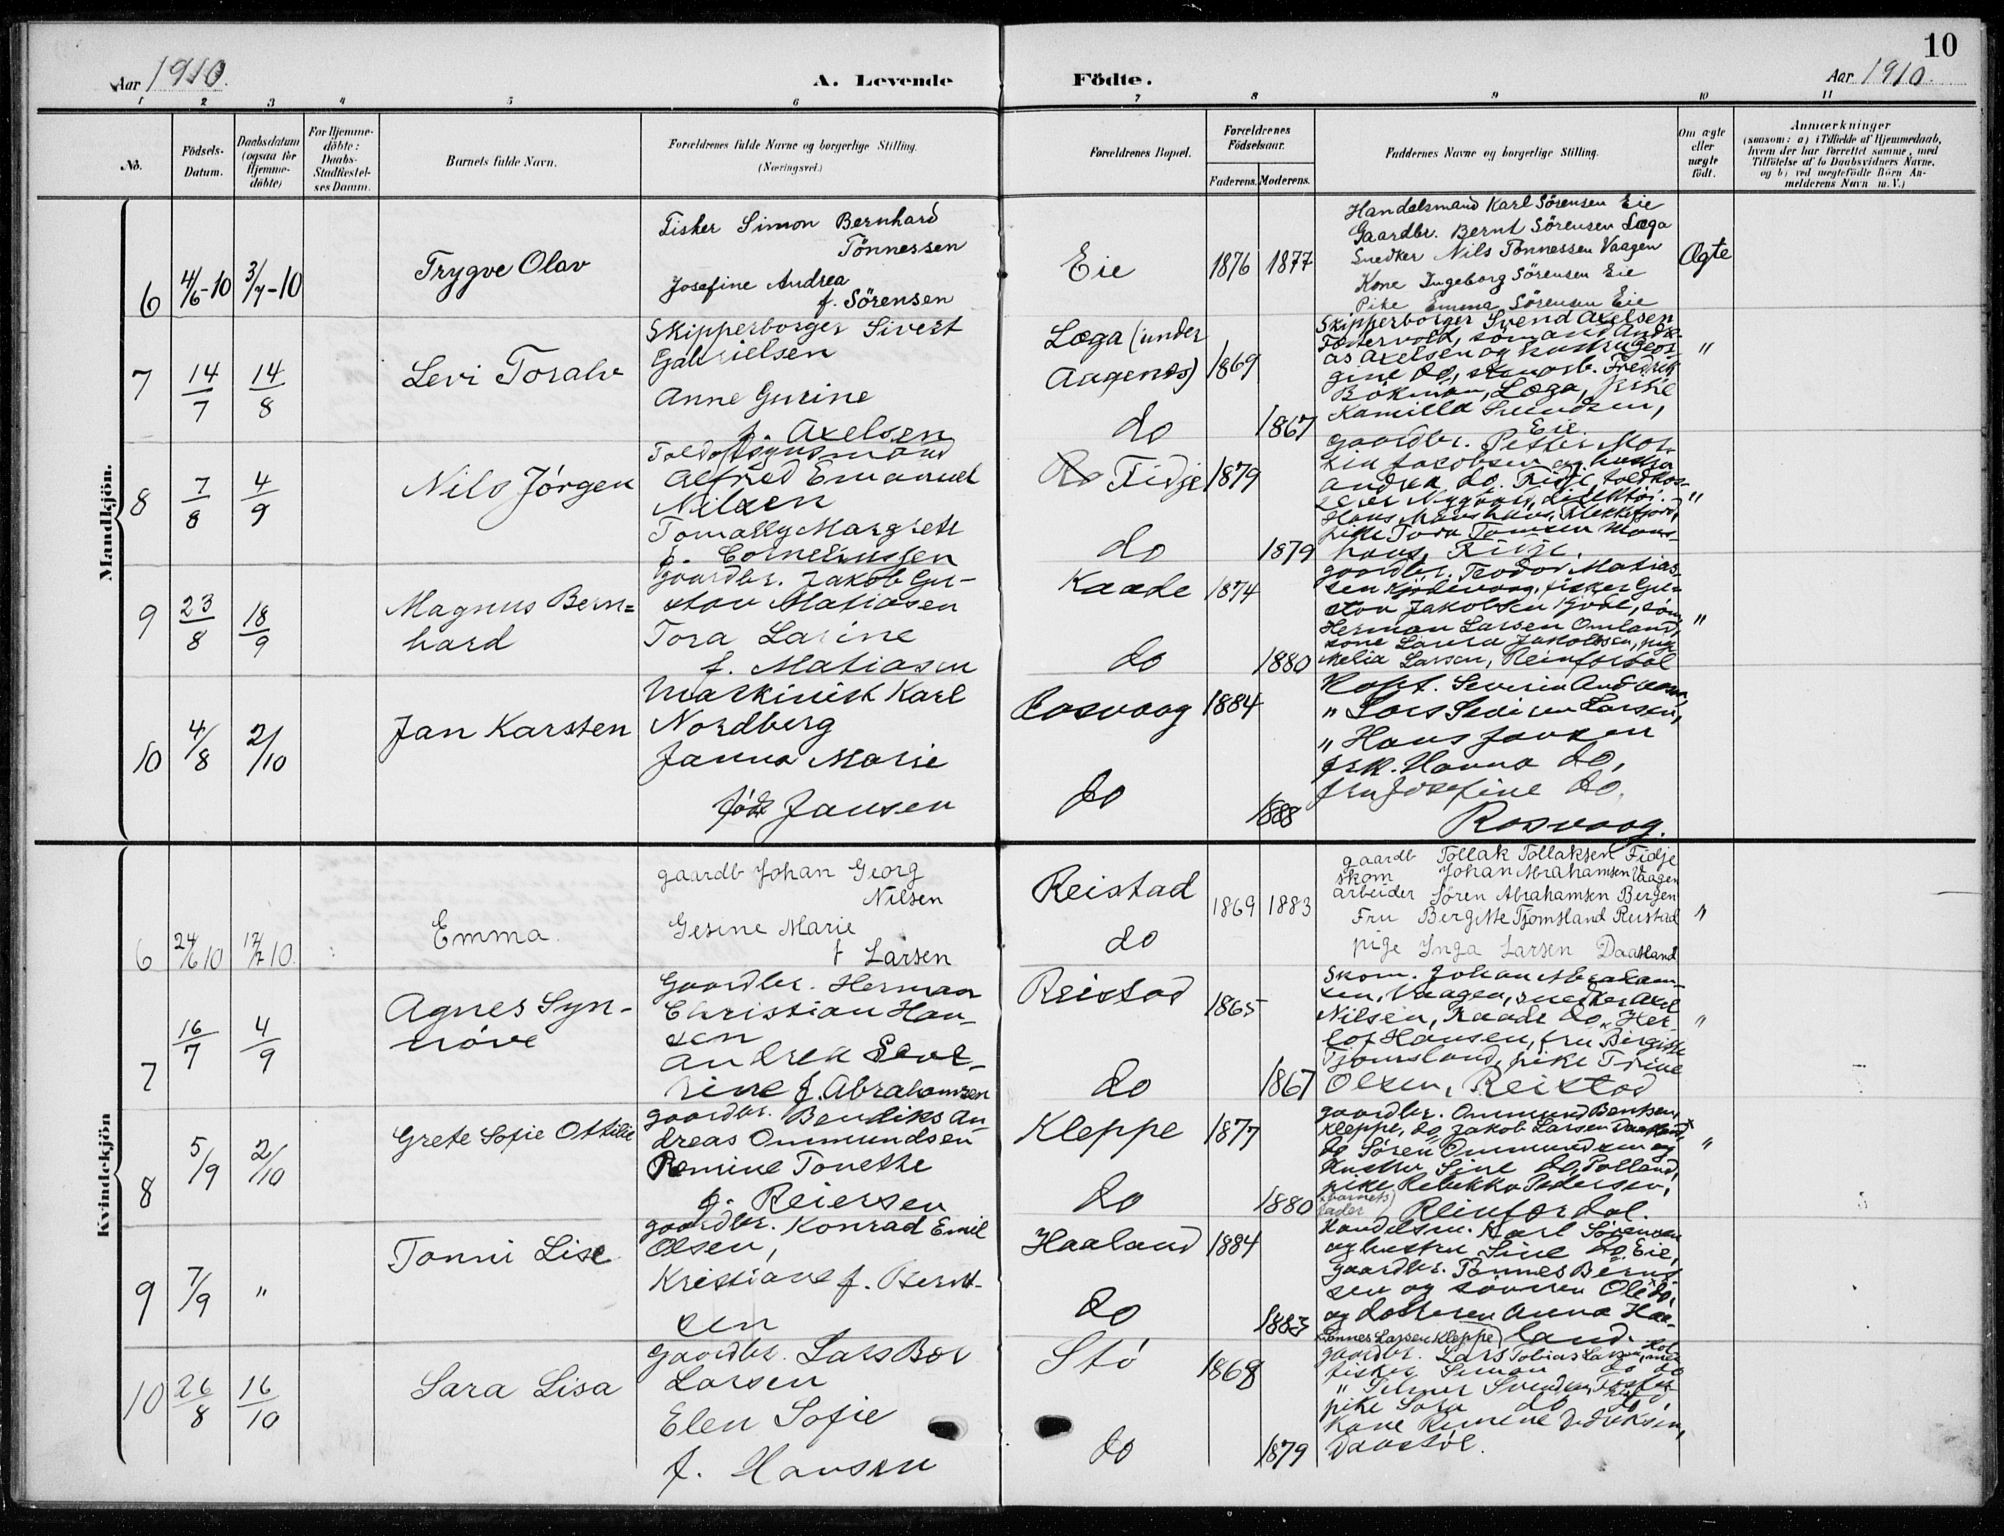 10
Aar 1910.
A. Levende
Födte.
Aar 1910.
1 2 3 4 5 6 7 8 9 10 11
No.
Födsels-
Datum.
Daabsdatum
(ogsaa for
Hjemme-
döbte)
For Hjemme-
döbte:
Daabs-
Stadfæstel-
ses Datum.
Barnets fulde Navn.
Forældrenes fulde Navne og borgerlige Stilling.
(Næringsvei.)
Forældrenes Bopæl.
Forældrenes
Födselsaar.
Faderens. Moderens.
Faddernes Navne og borgerlige Stilling.
Om ægte
eller
uægte
födt.
Anmærkninger
(saasom: a) i Tilfælde af Hjemmedaab,
hvem der har forrettet samme, med
Tilföielse af to Daabsvidners Navne.
og b) ved uegtefödte Börn An-
melderens Navn m. V.)
Mandkjön.
6 4/6-10 3/7-10
Trygve Olav
Fisker Simon Bernhard
Tönnessen
Josefine Andrea
f. Sörensen
Eie
1876 1877
Handelsmand Karl Sörensen Eie
Gaardbr. Bernt Sörensen Læga
Snedker Nils Tönnessen Vaagen
Kone Ingeborg Sörensen Eie
Pike Emma Sörensen Eie
Ægte
7 14/7 14/8
Levi Toralv
Skipperborger Sivert
Gabrielsen
Anne Gurine
f. Axelsen
Læga (under
Aagenes)
do
1869
1867
Skipperborger Svend Axelsen
as Axelsen og hustru Geor-
gine do, Fredrik
Læga, pike
Kamilla Svendsen,
Eie
"
8 7/8 4/9
Nils Jörgen
Toldopsynsmand
Alfred Emanuel
Nilsen
Margrete
f. Corneliussen
Fidje
do
1879
1879
gaardbr. Petter Mar-
tin Jakobsen og hustru
Andrea do. Fidje, toldkas-
direktör.
Hans Flekkefjord,
pike Tora Tomsen
Fidje.
"
9 23/8 18/9
Magnus Bern-
hard
gaardbr. Jakob Gu-
stav Matiasen
Tora Larine
f. Matiasen
Kaade
do
1874
1880
gaardbr. Teodor Matias-
sen fisker Gu-
stav Jakobsen
Herman Larsen Omland,
kone Laura Jakobsen, pige
Larsen,
"
10 4/8 2/10
Jan Karsten
Maskinist Karl
Nordberg
Janna Marie
född Jansen
Rosvaag
do
1884
1888
Kapt. Severin Andersen,
" Lars Larsen,
" Hans Jansen
frk. Hanna do,
fru Josefine do.
Rosvaag.
Kvindekjön
6 24/6 10 17/7 10.
Emma.
gaardb Johan Georg
Nilsen
Gesine Marie
f Larsen
Reistad
do
1869 1883
gaardb Tollak Tollaksen Fidje
skom Johan Abrahamsen Vaagen
arbeider Sören Abrahamsen Bergen
Fru Bergitte Tjomsland Reistad
pige Inga Larsen Daatland
"
7 16/7 4/9
Agnes Syn-
növe
Gaardbr. Herman
Christian Han-
sen
Andrea Seve-
rine f. Abrahamsen
Reistad
do
1865
1867
Skom. Johan Abraham-
sen, Vaagen, snedker Axel
Nilsen, Kaade do, Her-
lof Hansen, fru Birgitte
Tjomsland, pike Trine
Olsen, Reistad
"
8 5/9 2/10
Grete Sofie Ottilie
gaardbr. Bendiks An
dreas Ommundsen
Romine Tonette
f. Reiersen
Kleppe
do
1877
1880
gaardbr. Ommund Bentsen
Kleppe, do Jakob Larsen Daatland,*
do Sören Ommundsen og
hustru Sine do,
pike Rebekka Pedersen,
(barnets
fader) Reinfordal.
"
9 7/9 "
Tonni Lise
gaardbr. Konrad Emil
Olsen,
Kristiane f. Bernt-
sen
Haaland
do
1884
1883
Handelsm. Karl Sörensen
og hustru Sine do, Eie,
gaardbr. Tönnes Bernt
sen og sönnen Ole do,
og datteren Anna Haa-
land.
10 26/8 16/10
Sara Lisa
Gaardbr. Lars Bær
Larsen
Elen Sofie
f. Hansen
Stö
do
1868
1879
Tönnes Larsen Kleppe)
gaardbr. Lars Tobias Larsen,
fisker Simon do do
" Selmer Svendsen
pike Sara do do,
Kone Romine Dideriksen,
Daastöl.